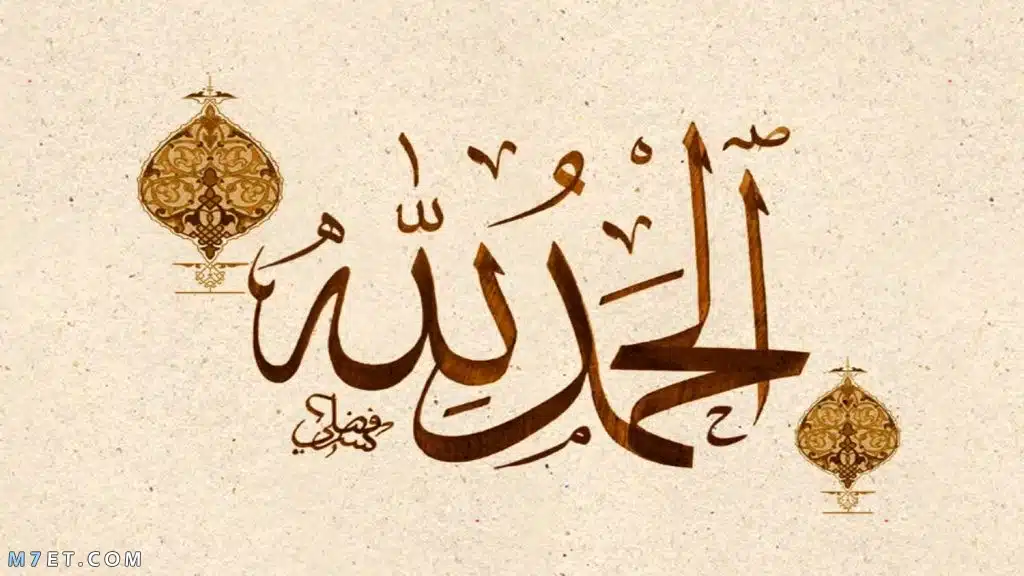 الحمدُ لِلّٰهِ
M7ET.COM